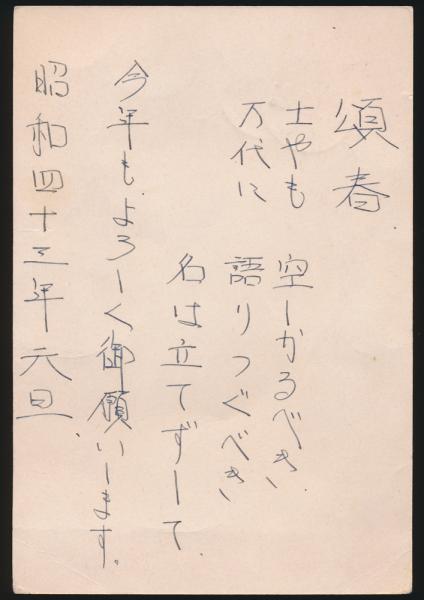 頌春
士やも 空しかるべき
万代に 語りつぐべき
名は立てずして
今年もよろしく御願いします。
昭和四十三年元旦